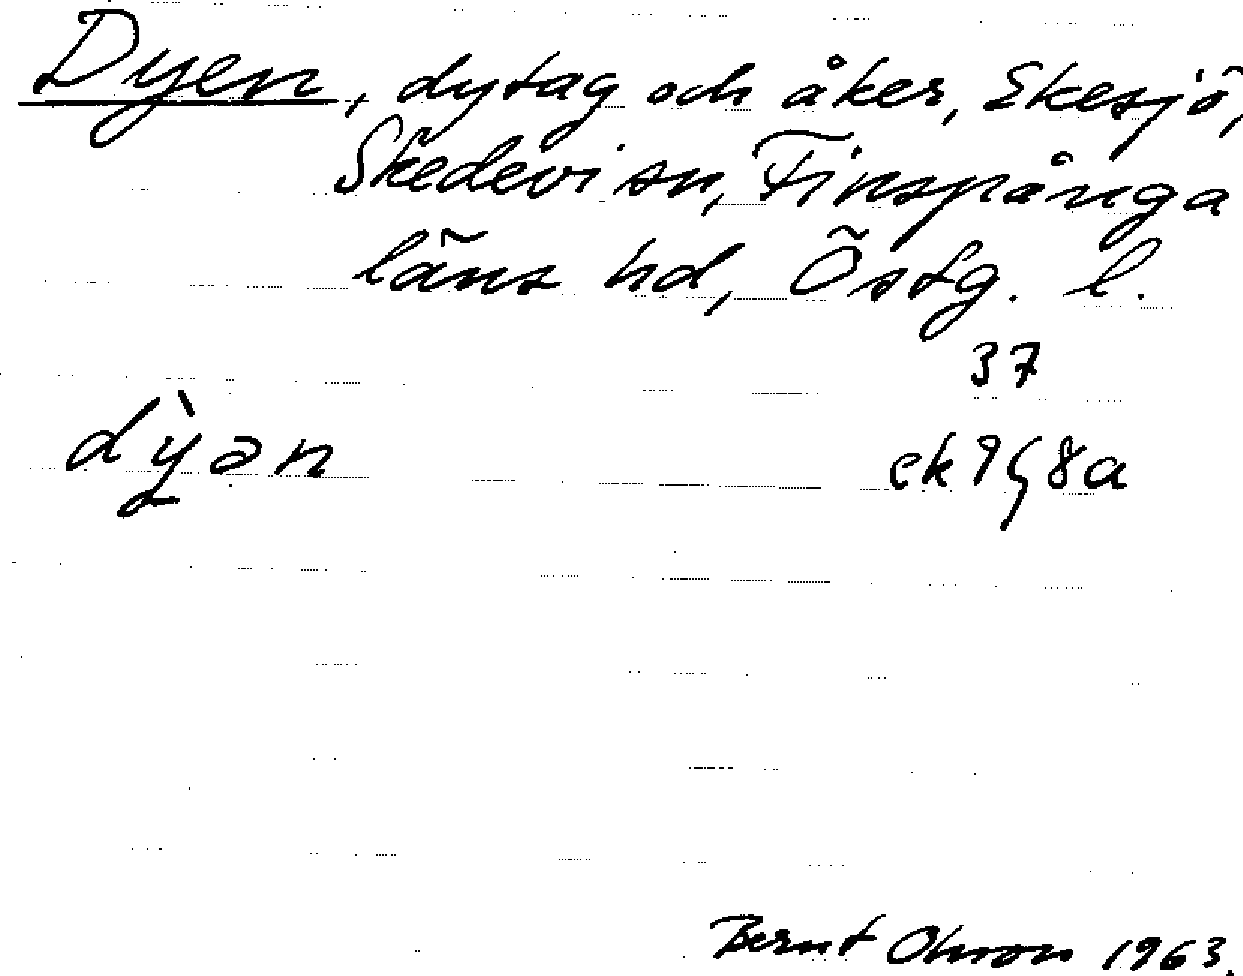 Dyen, dytag och åker, Ekesjö,
Skedevi sn, Finspånga
läns hd, Östg. l.
37
dỳən
ek 9G8a
Bernt Olsson 1963.